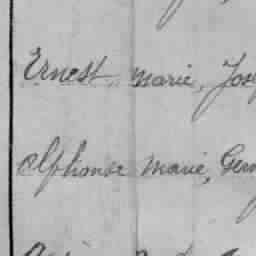 Ernest, Marie, Jos
Alphonse Marie, Germ